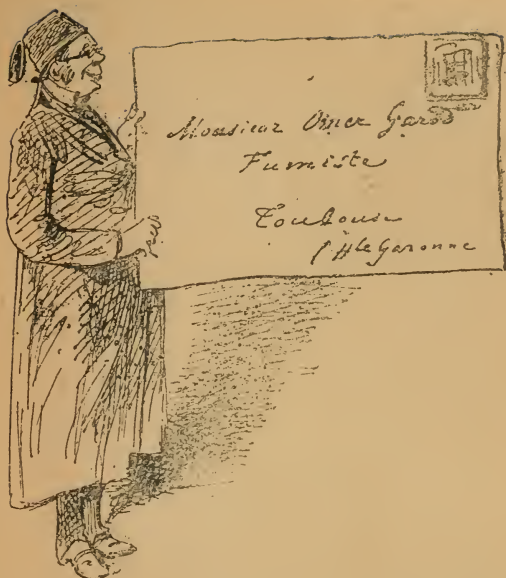 Monsieur Omer Garod
Fumiste
Toulouse
(Hte Garonne